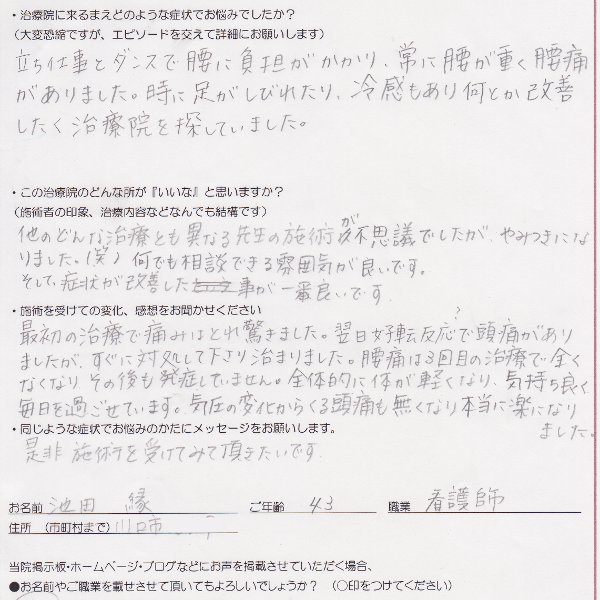 ・治療院に来るまえどのような症状でお悩みでしたか？
（大変恐縮ですが、エピソードを交えて詳細にお願いします）
立ち仕事とダンスで腰に負担がかかり、常に腰が重く腰痛
がありました。時に足がしびれたり、冷感もあり何とか改善
したく治療院を探していました。
・この治療院のどんな所が『いいな』と思いますか？
（施術者の印象、治療内容などなんでも結構です）
他のどんな治療とも異なる先生の施術が不思議でしたが、やみつきにな
りました。(笑) 何でも相談できる雰囲気が良いです。
そして、症状が改善した事が一番良いです
・施術を受けての変化、感想をお聞かせください
最初の治療で痛みはとれ驚きました。翌日好転反応？で頭痛があり
ましたが、すぐに対処して下さり治まりました。腰痛は3回目の治療で全く
なくなり その後も発症していません。全体的に体が軽くなり、気持ち良く
毎日を過ごせています。気圧の変化からくる頭痛も無くなり本当に楽になり
ました。
・同じような症状でお悩みのかたにメッセージをお願いします。
是非 施術を受けてみて頂きたいです
お名前 池田 縁 ご年齢 43 職業 看護師
住所 （市町村まで） 川口市
当院掲示板・ホームページ・ブログなどにお声を掲載させていただく場合、
●お名前やご職業を載せさせて頂いてもよろしいでしょうか？ （○印をつけてください）